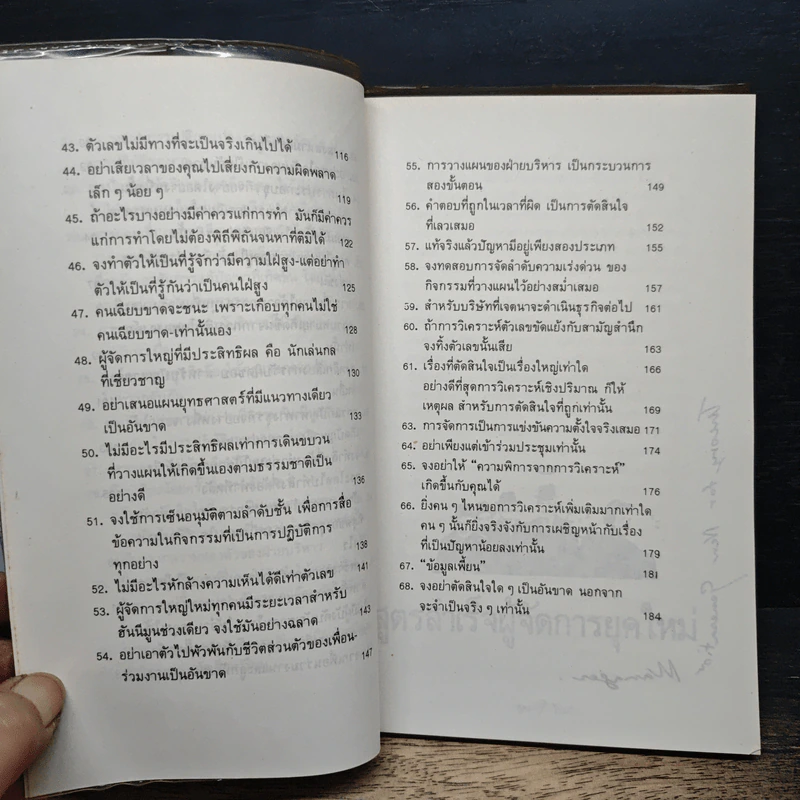 43. ตัวเลขไม่มีทางที่จะเป็นจริงเกินไปได้ 116
44. อย่าเสียเวลาของคุณไปเสี่ยงกับความผิดพลาด
เล็ก ๆ น้อย ๆ 119
45. ถ้าอะไรบางอย่างมีค่าควรแก่การทำ มันก็มีค่าควร
แก่การทำโดยไม่ต้องพิถีพิถันจนหาที่ติมิได้ 122
46. จงทำตัวให้เป็นที่รู้จักว่ามีความใฝ่สูง-แต่อย่าทำ
ตัวให้เป็นที่รู้กันว่าเป็นคนใฝ่สูง 125
47. คนเฉียบขาดจะชนะ เพราะเกือบทุกคนไม่ใช่
คนเฉียบขาด-เท่านั้นเอง 128
48. ผู้จัดการใหญ่ที่มีประสิทธิผล คือ นักเล่นกล
ที่เชี่ยวชาญ 130
49. อย่าเสนอแผนยุทธศาสตร์ที่มีแนวทางเดียว
เป็นอันขาด 133
50. ไม่มีอะไรมีประสิทธิผลเท่าการเดินขบวน
ที่วางแผนให้เกิดขึ้นเองตามธรรมชาติเป็น
อย่างดี 136
51. จงใช้การเซ็นอนุมัติตามลำดับชั้น เพื่อการสื่อ
ข้อความในกิจกรรมที่เป็นการปฏิบัติการ
ทุกอย่าง 138
52. ไม่มีอะไรหักล้างความเห็นได้ดีเท่าตัวเลข 141
53. ผู้จัดการใหญ่ใหม่ทุกคนมีระยะเวลาสำหรับ
ฮันนีมูนช่วงเดียว จงใช้มันอย่างฉลาด 143
54. อย่าเอาตัวไปพัวพันกับชีวิตส่วนตัวของเพื่อน-
ร่วมงานเป็นอันขาด 147
55. การวางแผนของฝ่ายบริหาร เป็นกระบวนการ
สองขั้นตอน 149
56. คำตอบที่ถูกในเวลาที่ผิด เป็นการตัดสินใจ
ที่เลวเสมอ 152
57. แท้จริงแล้วปัญหามีอยู่เพียงสองประเภท 155
58. จงทดสอบการจัดลำดับความเร่งด่วน ของ
กิจกรรมที่วางแผนไว้อย่างสม่ำเสมอ 157
59. สำหรับบริษัทที่เจตนาจะดำเนินธุรกิจต่อไป 161
60. ถ้าการวิเคราะห์ตัวเลขขัดแย้งกับสามัญสำนึก
จงทิ้งตัวเลขนั้นเสีย 163
61. เรื่องที่ตัดสินใจเป็นเรื่องใหญ่เท่าใด 166
อย่างดีที่สุดการวิเคราะห์เชิงปริมาณ ก็ให้
เหตุผล สำหรับการตัดสินใจที่ถูกเท่านั้น 169
63. การจัดการเป็นการแข่งขันความตั้งใจจริงเสมอ 171
64. อย่าเพียงแต่เข้าร่วมประชุมเท่านั้น 174
65. จงอย่าให้ “ความพิการจากการวิเคราะห์”
เกิดขึ้นกับคุณได้ 176
66. ยิ่งคน ๆ ไหนขอการวิเคราะห์เพิ่มเติมมากเท่าใด
คน ๆ นั้นก็ยิ่งจริงจังกับการเผชิญหน้ากับเรื่อง
ที่เป็นปัญหาน้อยลงเท่านั้น 179
67. “ข้อมูลเพี้ยน” 181
68. จงอย่าตัดสินใจใด ๆ เป็นอันขาด นอกจาก
จะจำเป็นจริง ๆ เท่านั้น 184